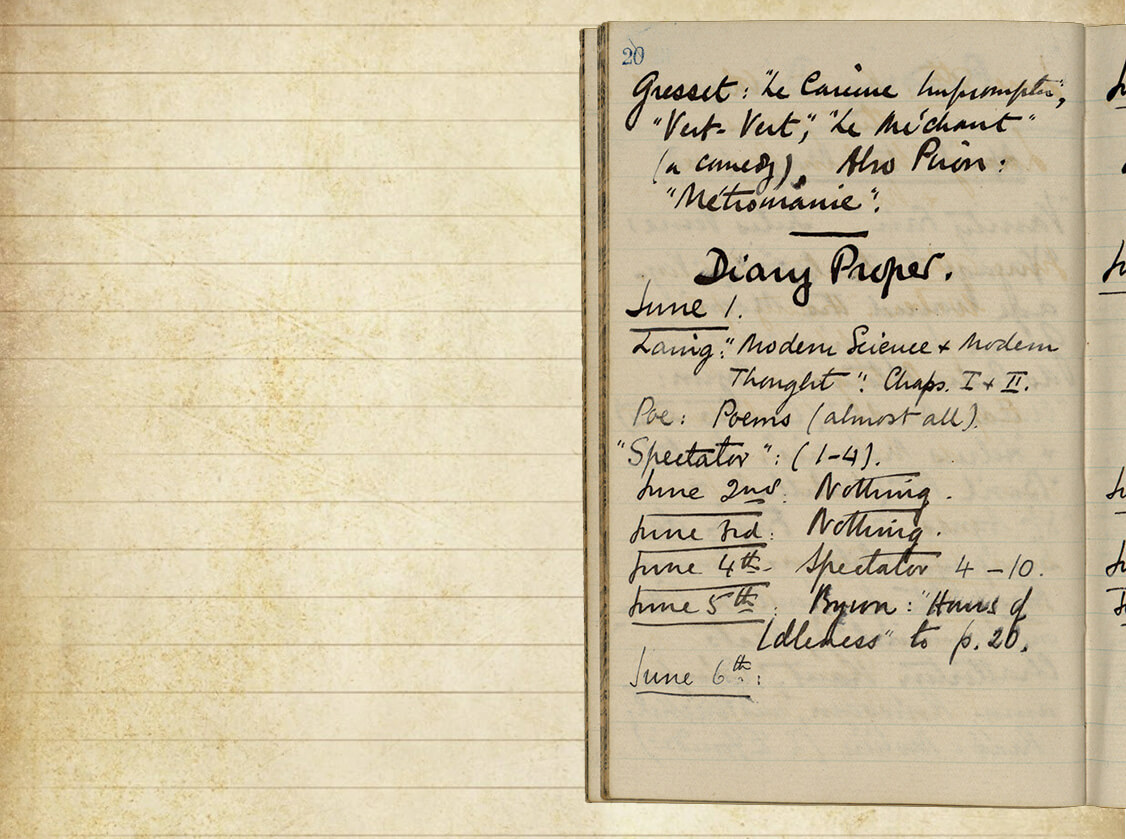 20
Gresset: "Le Carême Impromptu",
"Vert-Vert", "Le Méchant"
(a comedy). Also Piron:
"Métromanie".
Diary Proper.
June 1.
Laing: "Modern Science & Modern
Thought": Chaps. I & II.
Poe: Poems (almost all).
"Spectator": (1-4).
June 2nd. Nothing.
June 3rd: Nothing.
June 4th. Spectator 4-10.
June 5th: Byron: "Hours of
Idleness" to p. 20.
June 6th: